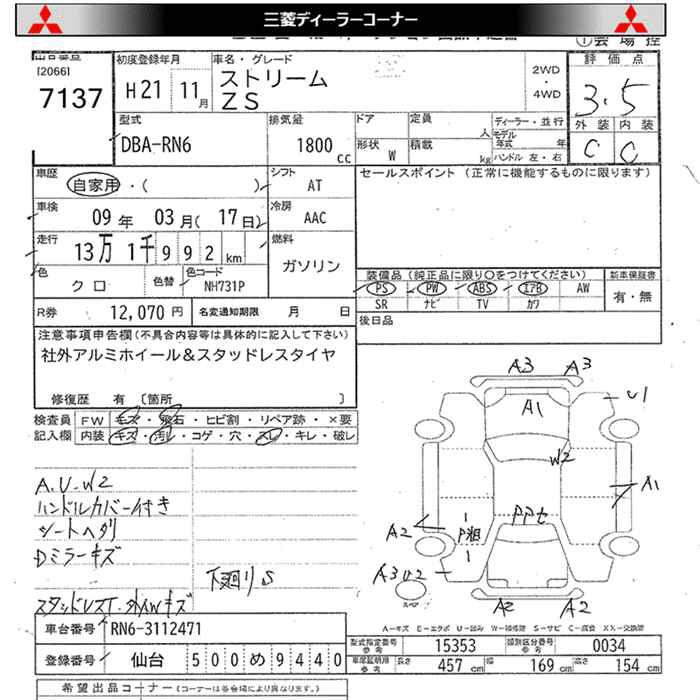 三菱ディーラーコーナー
出品番号 初度登録年月 車名・グレード 評価点
[2066] ストリーム 2WD
7137 H21 11月 ZS 4WD 3.5
型式 排気量 ドア 定員 人 ディーラー・並行 外装 内装
DBA-RN6 1800cc 形状 W 積載 kg モデル年式 年 C C
ハンドル 左・右
車歴 自家用・( ) シフト AT セールスポイント (正常に機能するものに限ります)
車検 09年 03月(17日) 冷房 AAC
走行 13万 1千 992 km 燃料 ガソリン
色 クロ 色替 色コード NH731P 装備品 (純正品に限り○をつけてください) 新車保証書
PS PW ABS エアB AW 有・無
SR ナビ TV カワ
R券 12,070円 名変通知期限 月 日 後日品
注意事項申告欄(不具合内容等は具体的に記入して下さい)
社外アルミホイール&スタッドレスタイヤ
修復歴 有 [箇所 ]
検査員 FW キズ・飛石・ヒビ割・リペア跡・×要
記入欄 内装 キズ・汚レ・コゲ・穴・スレ・キレ・破レ
A3 A3
A1 U1
W2
A.U.W2 A1
ハンドルカバー付き
シートヘタリ A2 PPセ
Dミラーキズ
下廻りS A3 U2
スペア
スタッドレスT.外AWキズ A2 A2
A-キズ E-エクボ U-凹み W-補修跡 S-サビ C-腐食 XX-交換跡
車台番号 RN6-3112471 型式指定番号 参考 15353 類別区分番号 参考 0034
登録番号 仙台 500め9440 車庫証明用 参考 長さ 457cm 幅 169cm 高さ 154cm
希望出品コーナー (コーナーは各会場により異なります。)